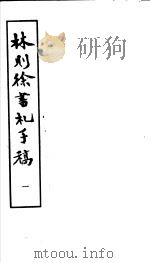 林则徐書札手稿
一
mtoou.info